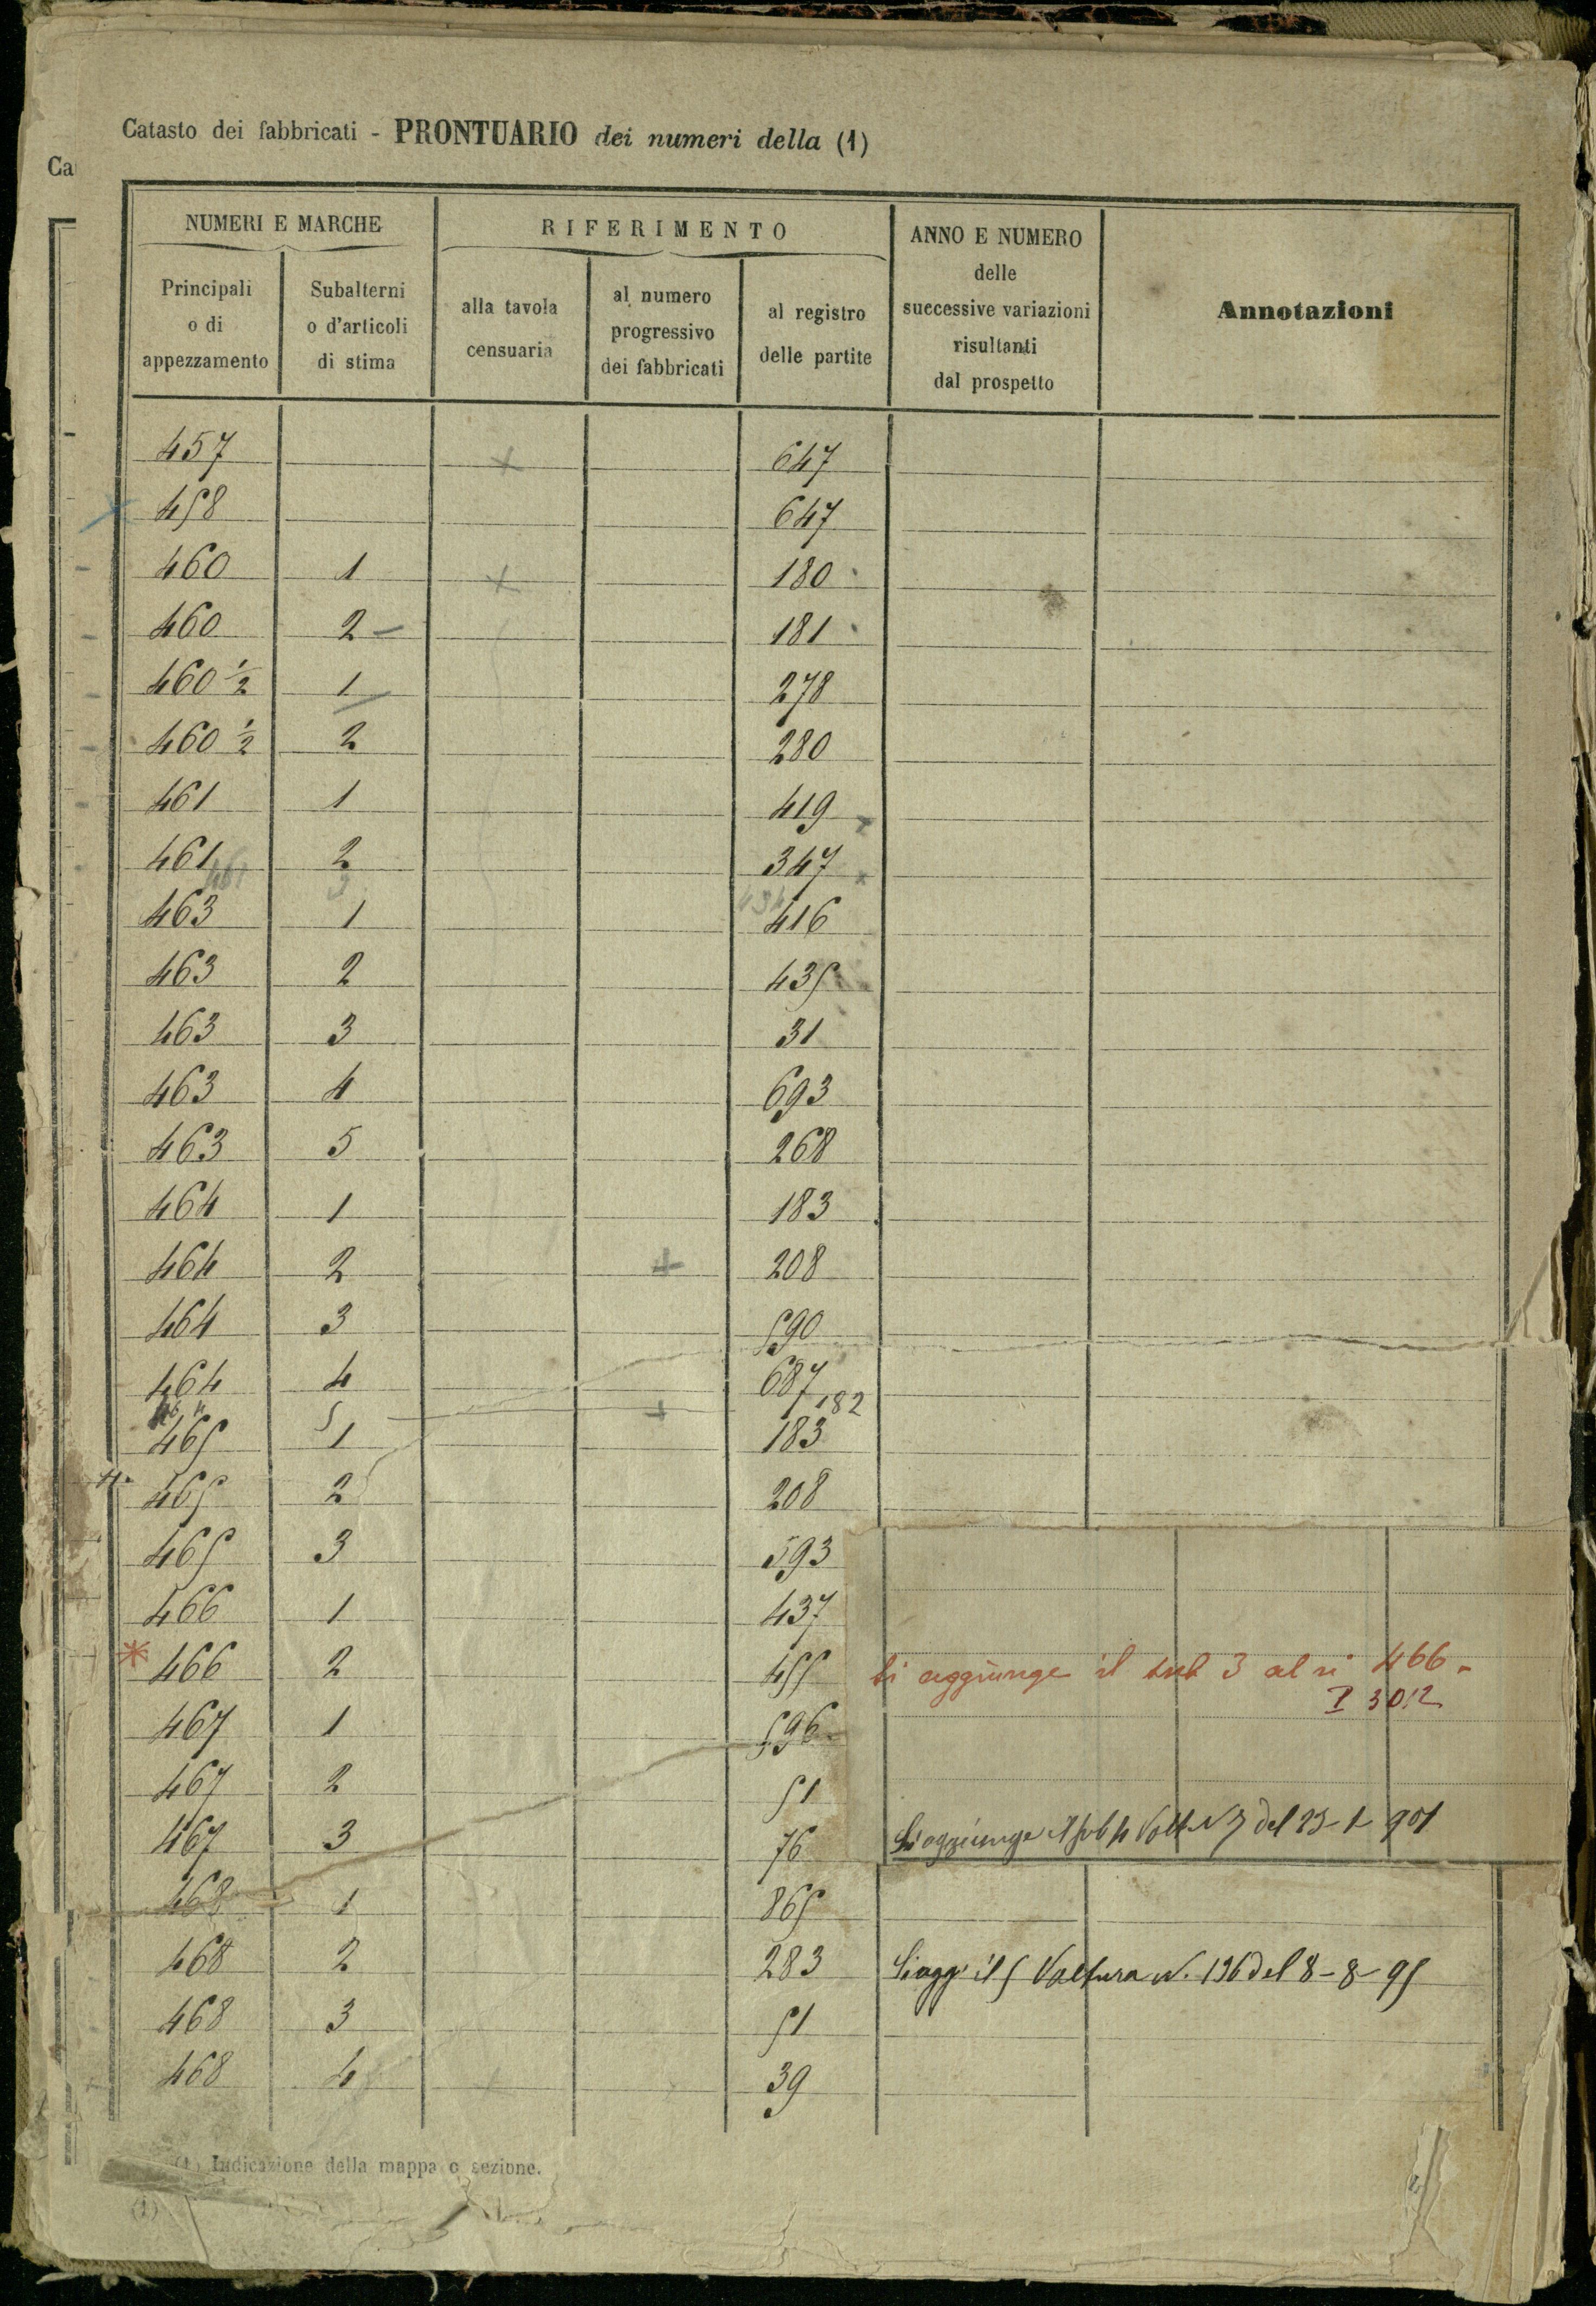 Catasto dei fabbricati - PRONTUARIO dei numeri della (1)
Ca
NUMERI E MARCHE
RIFERIMENTO
ANNO E NUMERO
delle
successive variazioni
risultanti
dal prospetto
Annotazioni
Principali
o di
appezzamento
Subalterni
o d'articoli
di stima
alla tavola
censuaria
al numero
progressivo
dei fabbricati
al registro
delle partite
457 + 647
458 647
460 1 + 180
460 2 - 181
460 1/2 1 278
460 1/2 2 280
461 1 419
461 2 347
461 3 434
463 1 416
463 2 435
463 3 31
463 4 693
463 5 268
464 1 183
464 2 + 208
464 3 590
464 4 687
464 5 + 182
465 1 183
465 2 208
465 3 593
466 1 437
* 466 2 455 Si aggiunge il sub 3 al n 466 -
I 3012
467 1 596
467 2 51
467 3 76 Si aggiunge il sub 4 Volt N 3 del 23-1-901
468 1 865
468 2 283 Si agg. il 5 Voltura N. 136 del 8-8-95
468 3 51
468 4 39
(1) Indicazione della mappa o sezione.
(1)